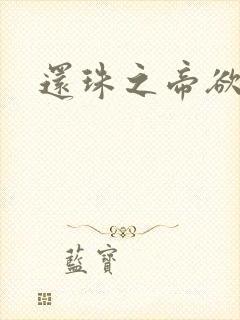 還珠之帝欲
藍寶